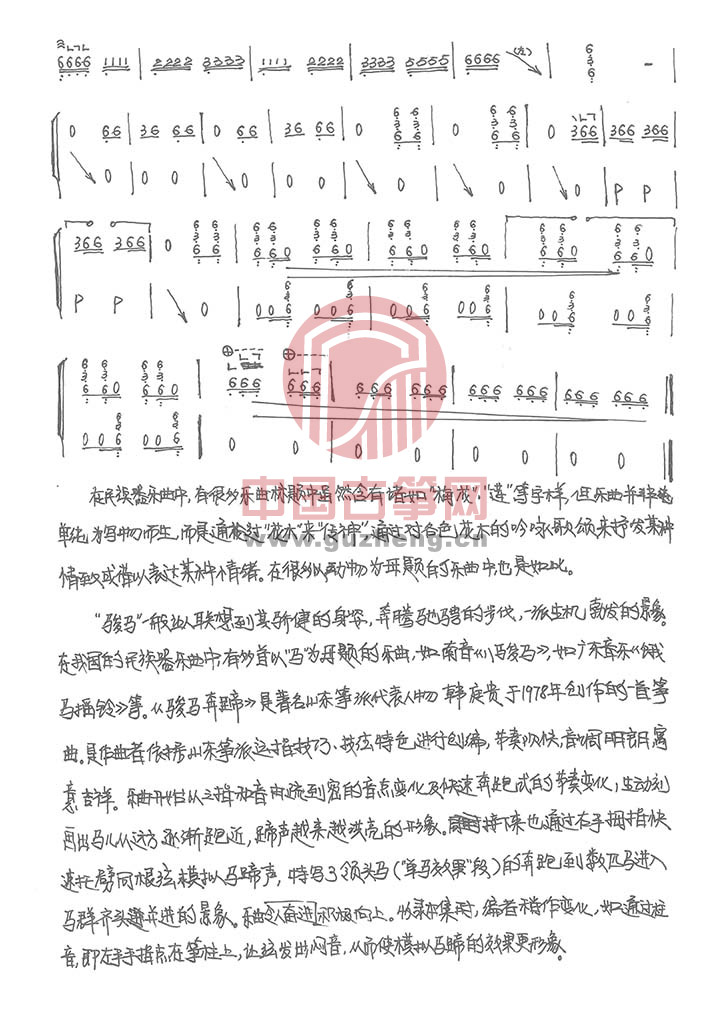 6666 1111 | 2222 3333 | 1111 2222 | 3333 5555 | 6666 (左) | 6 3 6 - |
0 66 | 36 66 | 0 66 | 36 66 | 0 | 0 | 0 366 | 366 366
0 | 0 0 | 0 | 0 0 | 0 | 0 | 0 | P P
366 366 | 0 | 660 660 | 660 660 | 660 660
P P | 0 | 006 006 | 006 006 | 006 006
660 660 | 666 666 | 666 666 | 666 666 | 666 666
006 006 | 0 0 | 0 0 | 0 0 | 0 0
中国古筝网
www.guzheng.cn
在民族器乐曲中,有很多乐曲标题中虽然含有诸如"梅花"、"莲"等字样,但乐曲并非
单纯为写物而生,而是通过"花木"来 通过对各色花木的吟咏歌颂来抒发某种
情致或得以表达某种情绪。在很多以动物为母题的乐曲中也是如此。
"骏马"一般让人联想到其矫健的身姿,奔腾驰骋的步伐,一派生机勃发的景象。
在我国的民族器乐曲中,有多首以"马"为母题的乐曲,如南音《八骏马》,如广东音乐《饿
马摇铃》等。《骏马奔蹄》是著名山东筝派代表人物韩庭贵于1978年创作的一首筝
曲。是作曲者依据山东筝派运指技巧、技法特色进行创编,节奏明快,音调明朗,寓
意吉祥。乐曲开始从三指和音由疏到密的音点变化及快速奔跑式的节奏变化,生动刻
画出马儿从远方逐渐跑近,蹄声越来越洪亮的形象。接下来也通过右手拇指快
速托劈同根弦模拟马蹄声,特写了领头马("单马效果"段)的奔跑到数匹马进入
马群齐头并进的景象。乐曲令人奋进,积极向上。收录本集时,编者稍作变化,如通过柱
音,即左手手指点在筝柱上,让弦发出闷音,从而使模拟马蹄的效果更形象。